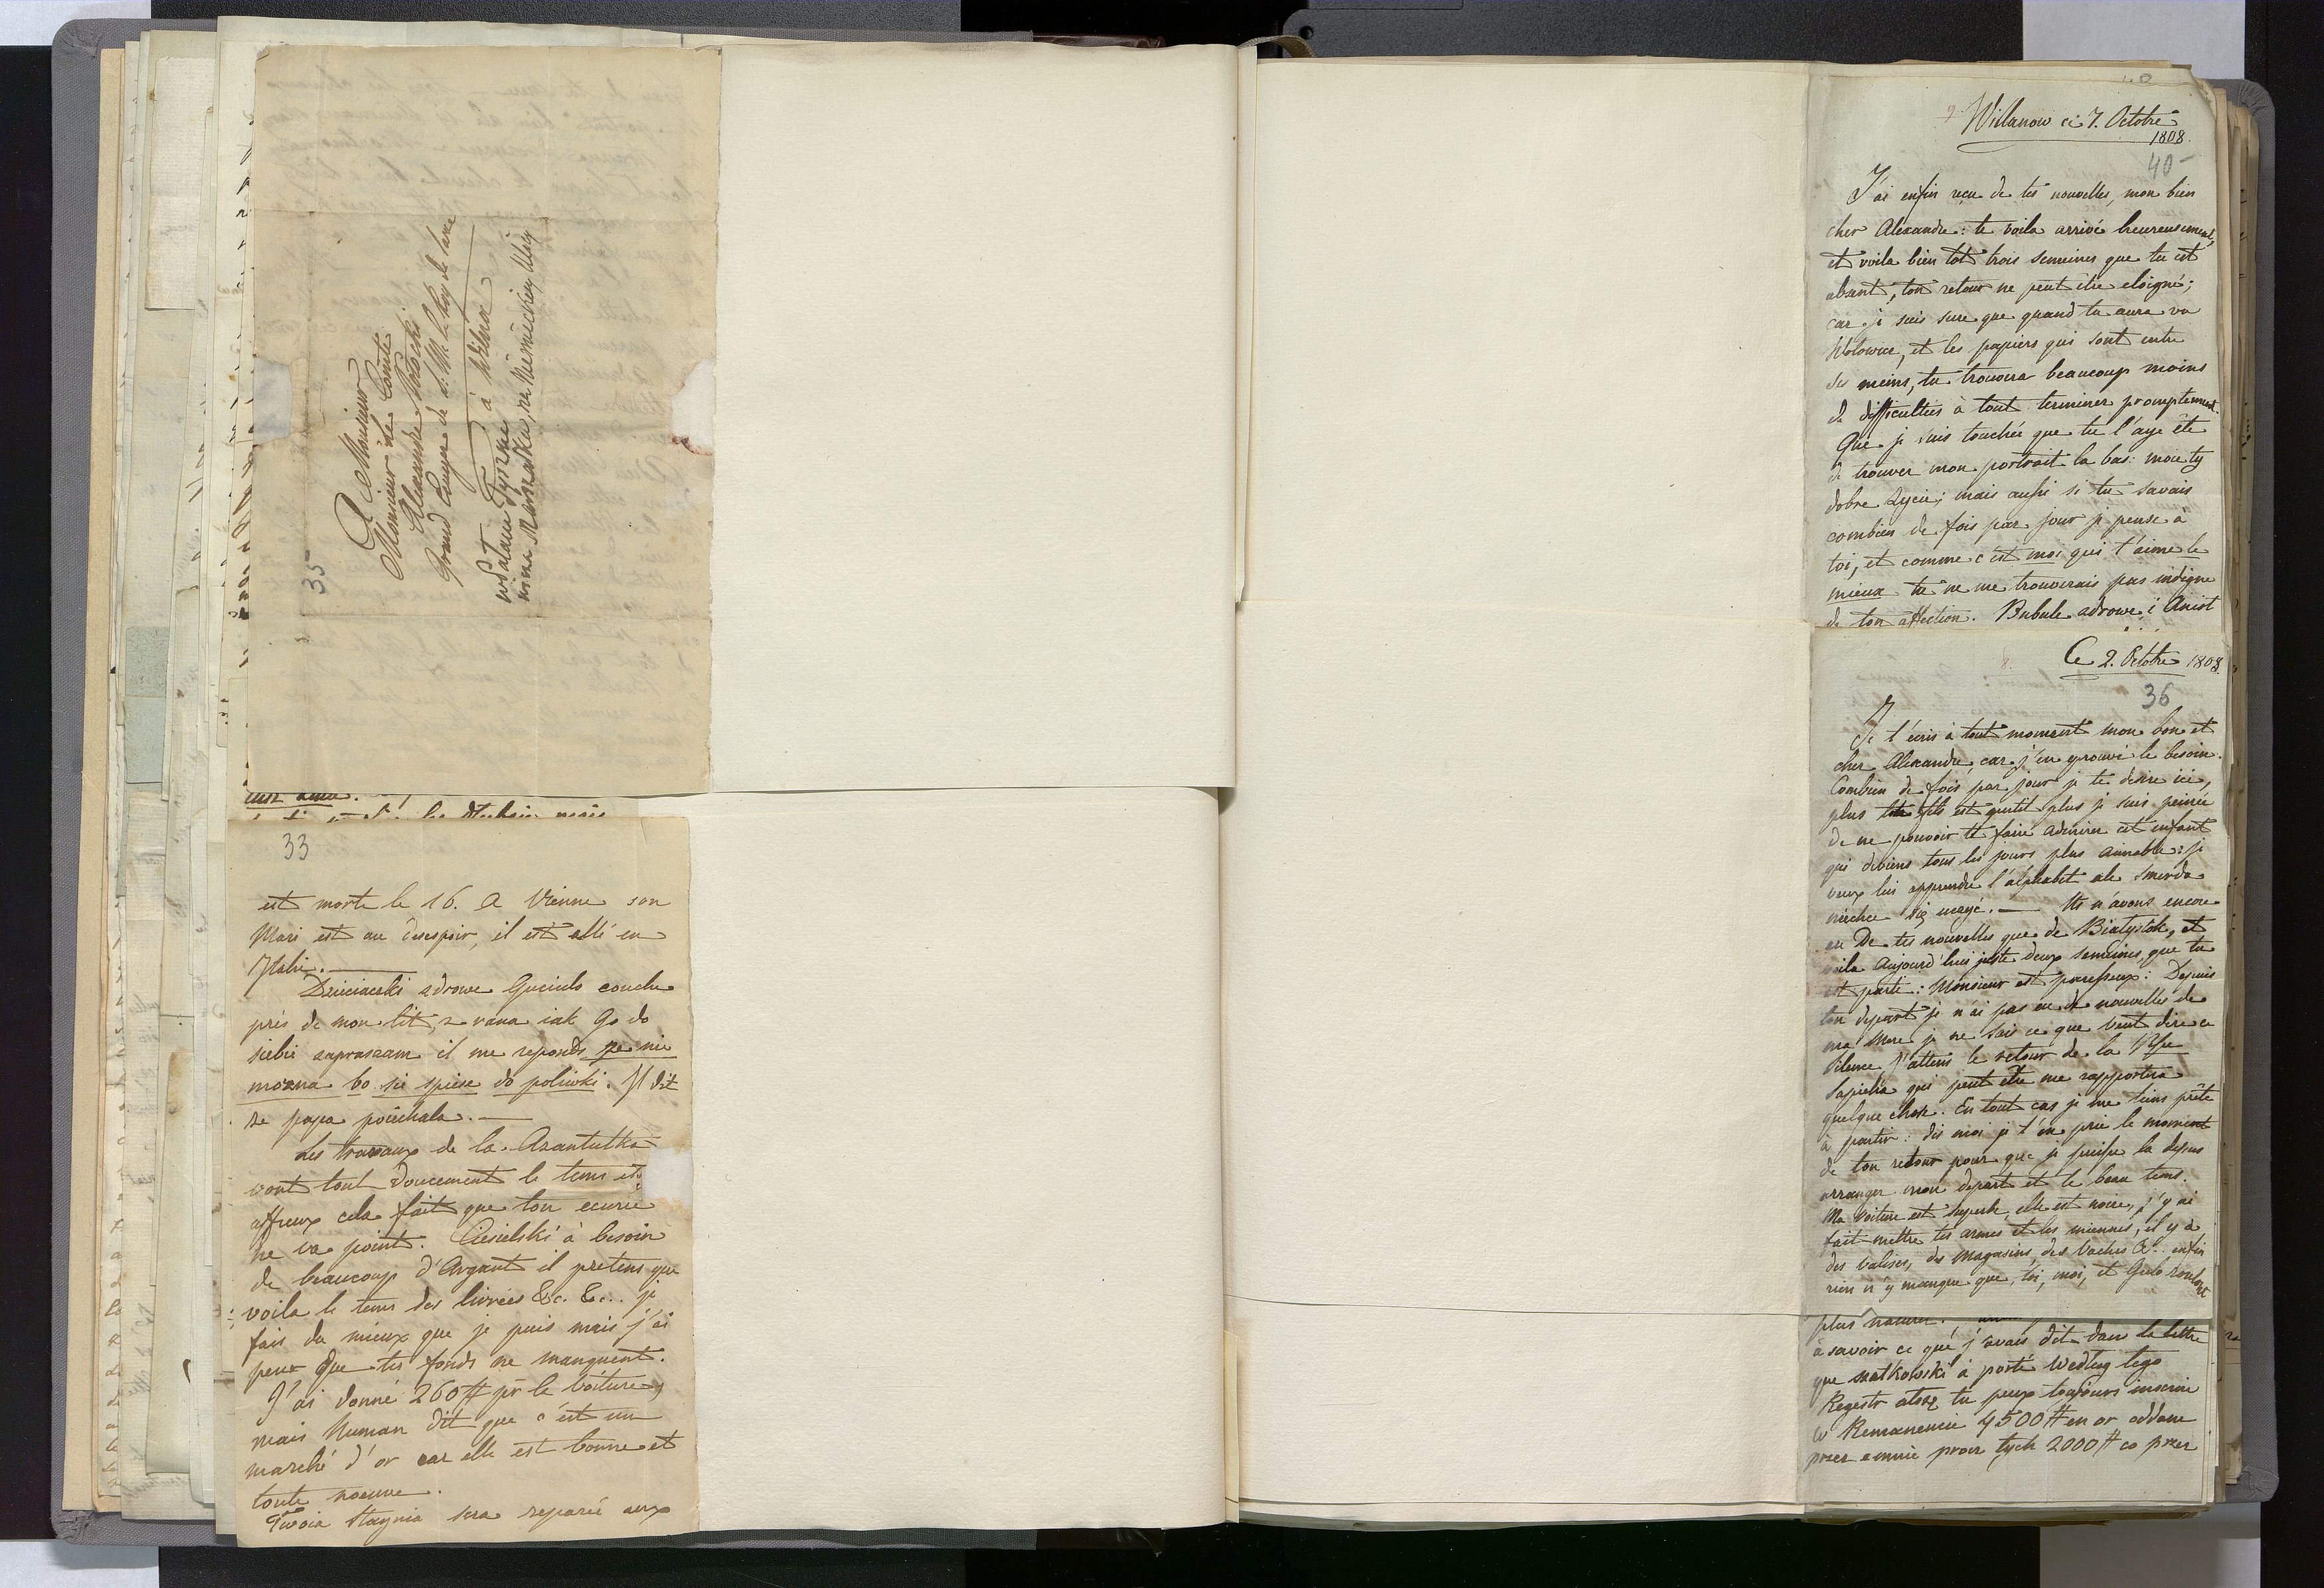 35
A Monsieur
Monsieur le Comte
Alexandre Potocki
Grand Ecuyer de S. M. le Roy de Saxe
à Wilna
w Pałacu Tyszkie
wicza Marszałka, na Niemieckiey Ulicy
33
est morte le 16. a Vienne son
Mari est au desespoir, il est allé en
Italie.
Dzieciaczki zdrowe Gucinlo couche
près de mon lit, z rana iak go do
siebie zapraszam il me reponds że nie
można bo się spiese do polewki. Il dit
że papa poiechała.
Les travaux de la
vont tout doucement le tems est
affreux cela fait que ton ecurie
ne va point. Ciesielski à besoin
de beaucoup d'Argant il pretens que
voila le tems des livrées &c. &c.. je
fais du mieux que je puis mais j'ai
peur que tes fonds ne manquent.
J'ai donné 260 # pr la voiture,
mais Numan dit que c'est un
marché d'or car elle est bonne et
toute noeuve.
Twoia Staynia sera reparée aux
Willanow ce 7. Octobre
1808.
40
J'ai enfin reçu de tes nouvelles, mon bien
cher Alexandre: te voila arrivé heureusement,
et voila bien tot trois semaines que tu est
absent, ton retour ne peut être eloigné;
car je suis sure que quand tu aura vu
Wolowicz, et les papiers qui sont entre
ses meins, tu trouvera beaucoup moins
de difficultées à tout terminer promptement.
Que je suis touchée que tu l'aye été
de trouver mon portrait la bas: moie ty
dobre życie; mais aussi si tu savais
combien de fois par jour je pense à
toi, et comme c'est moi qui t'aime le
mieux tu ne me trouverais pas indigne
de ton affection. Bubule zdrowe i
Ce 2. Octobre 1808.
36
Je t'écris à tout moment mon bon et
cher Alexandre, car j'en eprouve le besoin.
Combien de fois par jour je te desire ici,
plus ton fils est gentil plus je suis peinée
de ne pouvoir te faire admirer cet enfant
qui deviens tous les jours plus aimable: je
veux lui apprendre l'alphabet ale smerda
niechce się uczyć. — Ns n'avons encore
eu De tes nouvelles que de Białystok, et
voila Aujourd'hui juste deux semaines, que tu
est parti: Monsieur est paresseux: Depuis
ton depart je n'ai pas eu de nouvelles de
ma Mere je ne sais ce que veut dire ce
silence, j'attens le retour de la Psse
Sapieha qui peut être me rapportera
quelque chose. En tout cas je me tiens prête
à partir: dis moi je t'en prie le moment
de ton retour pour que je puisse la dessus
arranger mon depart et le beau tems.
Ma voiture est superbe, elle est noire, j'y ai
fait mettre tes armes et les miennes, il y a
des valises, des Magasins, des Vaches &c.. enfin
rien n'y manque que, toi, moi, et Gulo
à savoir ce que j'avais dit dans la lettre
que à porté Według tego
Regestr tu peux toujours inscrire
w Remanencie 4500 # en or oddane
przez emnie procz tych 2000 # co przez